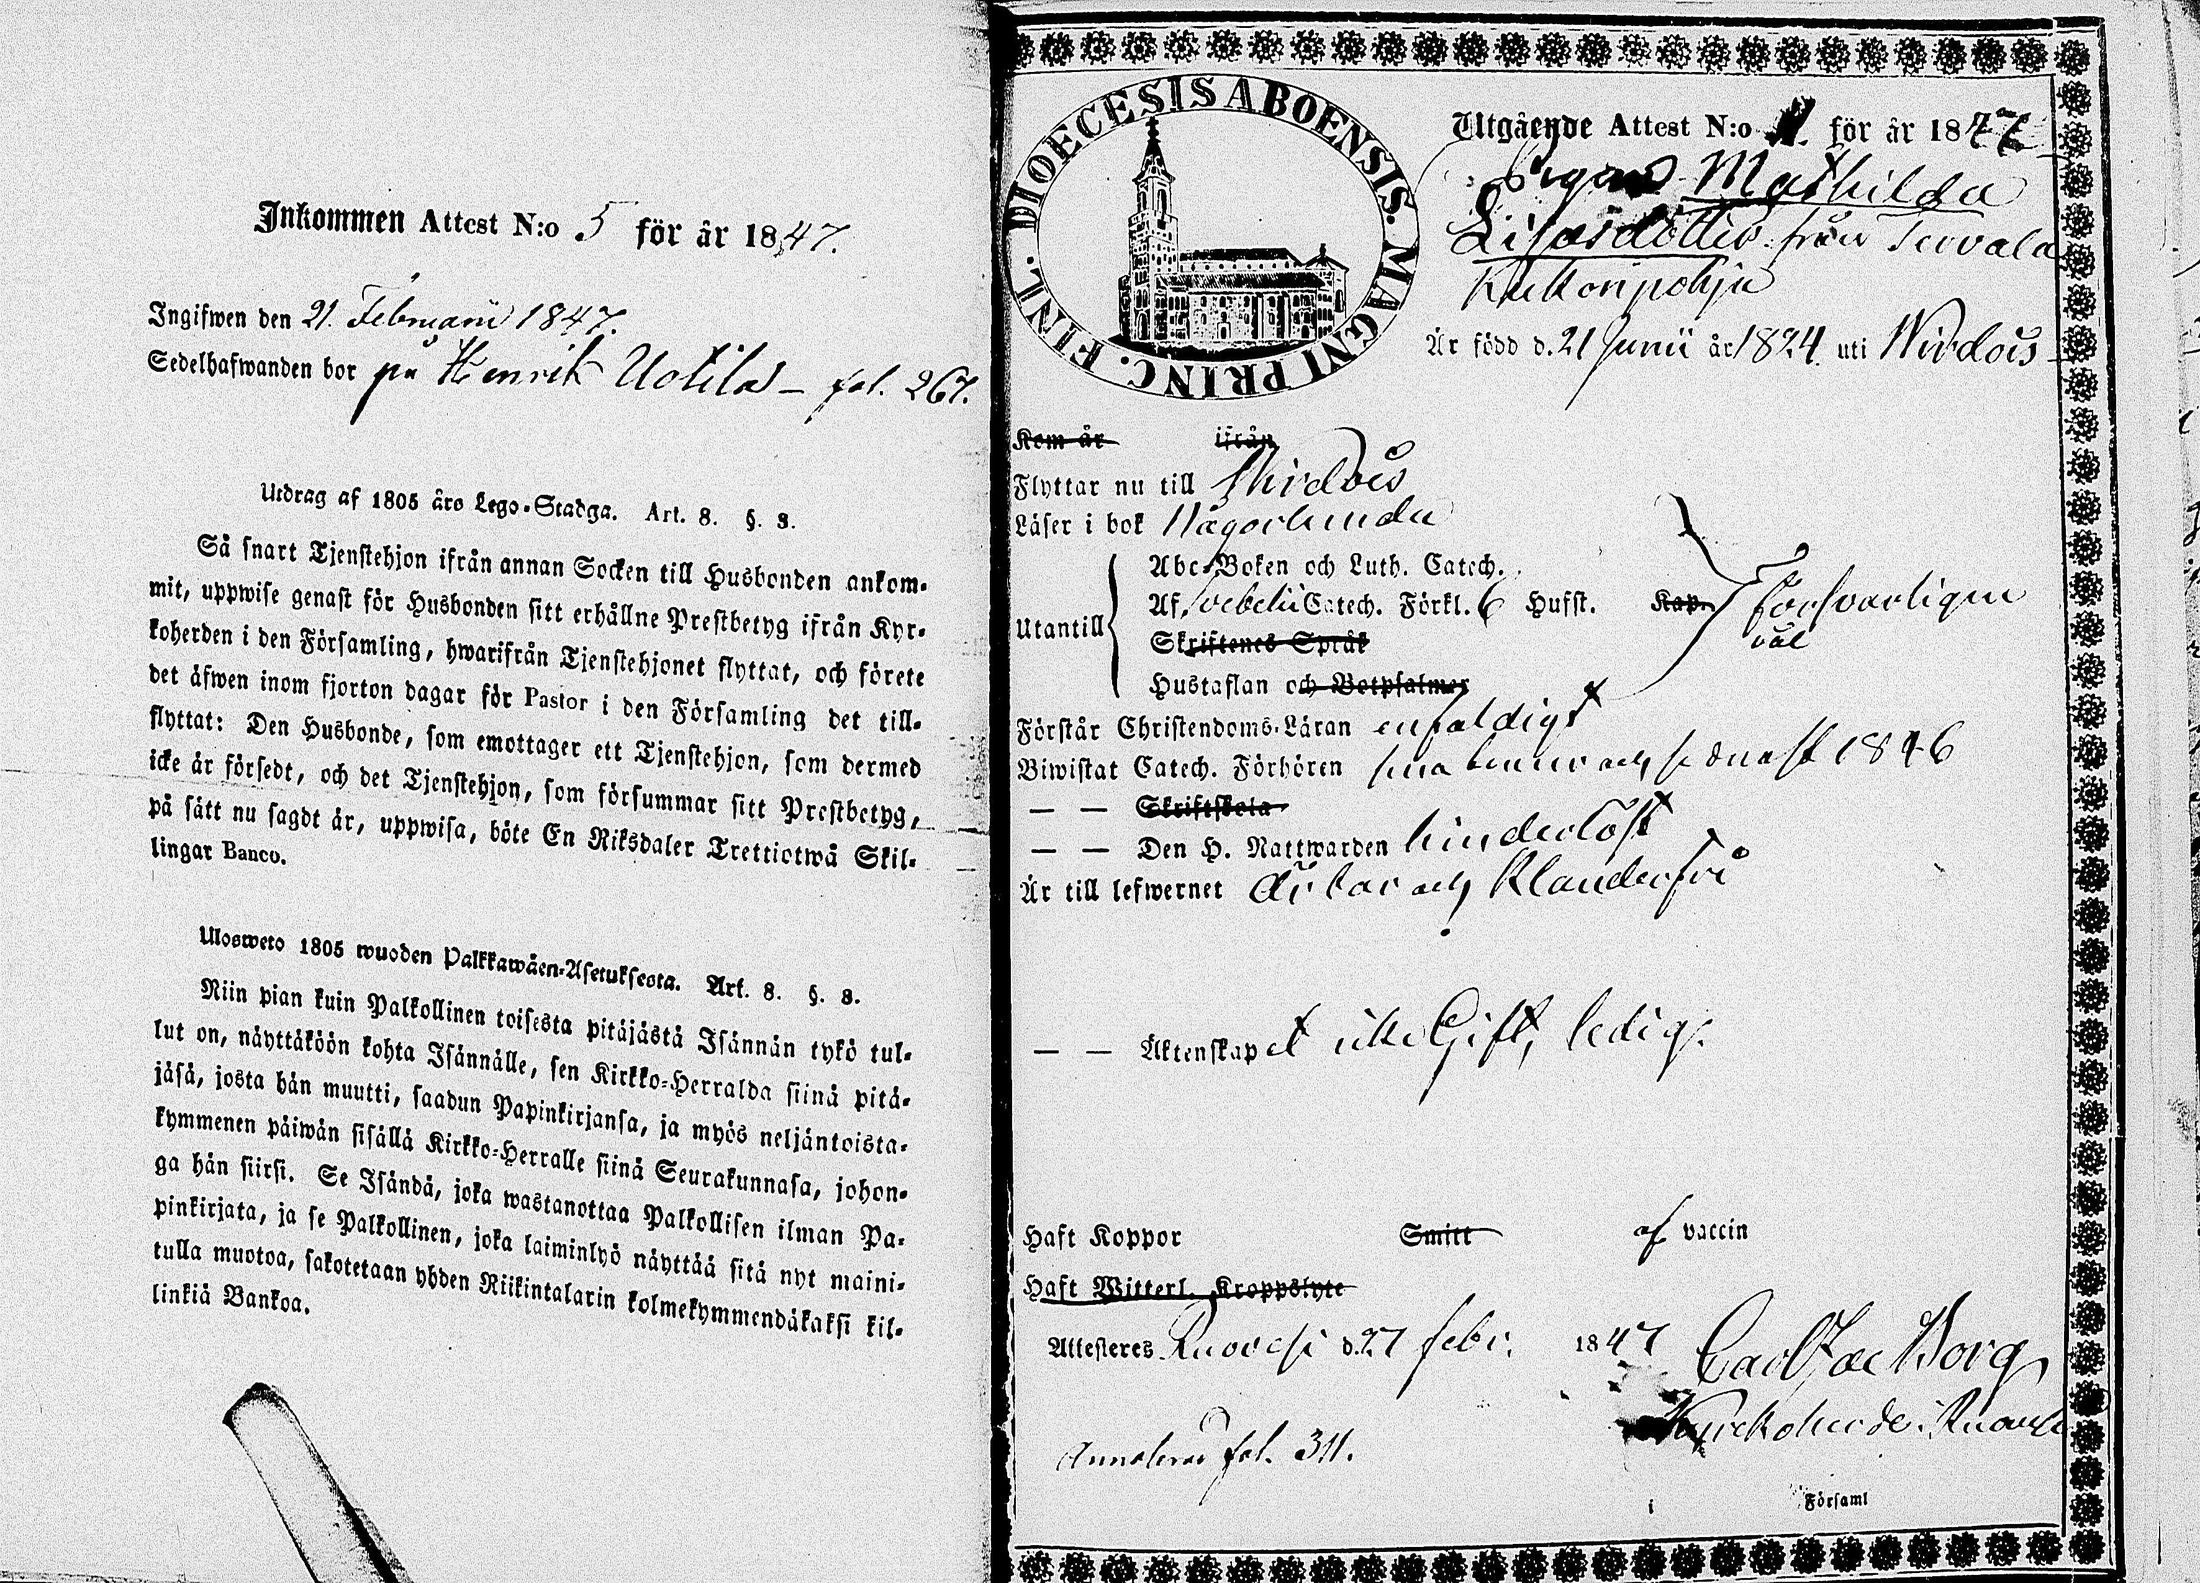 Inkommen Attest N:o 5 för år 1847.
Ingifwen den 21. Februarii 1847.
Sedelhafwanden bor på Henrik Uotila – fol. 267.
Utdrag af 1805 års Lego-Stadga. Art. 8. §. 3.
Så snart Tjenstehjon ifrån annan Socken till Husbonden ankom-
mit, uppwise genast för Husbonden sitt erhållne Prestbetyg ifrån Kyr-
koherden i den Församling, hwarifrån Tjenstehjonet flyttat, och förete
det äfwen inom fjorton dagar för Pastor i den Församling det till-
flyttat: Den Husbonde, som emottager ett Tjenstehjon, som dermed
icke är försedt, och det Tjenstehjon, som försummar sitt Prestbetyg,
på sätt nu sagdt är, uppwisa, böte En Riksdaler Trettiotwå Skil-
lingar Banco.
Ulosweto 1805 wuoden Palkkawäen-Asetuksesta. Art. 8. §. 3.
Niin pian kuin Palkollinen toisesta pitäjästä Isännän tykö tul-
lut on, näyttäköön kohta Isännälle, sen Kirkko-Herralda siinä pitä-
jäsä, josta hän muutti, saadun Papinkirjansa, ja myös neljäntoista-
kymmenen päiwän sisällä Kirkko-Herralle siinä Seurakunnasa, johon-
ga hän siirsi. Se Isändä, joka wastanottaa Palkollisen ilman Pa-
pinkirjata, ja se Palkollinen, joka laiminlyö näyttää sitä nyt maini-
tulla muotoa, sakotetaan yhden Riikintalarin kolmekymmendäkaksi kil-
linkiä Bankoa.
DIOECESIS ABOENSIS. MAGNI PRINC. FINL.
Utgående Attest N:o för år 1847
Pigan Mathilda
Lisasdotter från Tervala
Kukonpohja
Är född d. 21 Junii år 1824. uti Wirdois
Kom år ifrån
Flyttar nu till Wirdois
Läser i bok Någorlunda
Utantill
Abc-Boken och Luth. Catech.
Af Svebelii Catech. Förkl. 6 Hufst. Kap.
Skriftenes Språk
Hustaflan och Botpsalmer
Försvarligen
väl
Förstår Christendoms-Läran enfaldigt
Biwistat Catech. Förhören sina benner och sednast 1846
— — Skriftskola
— — Den H. Nattwarden hinderlöst
Är till lefwernet ärbar och klanderfri
— — Äktenskapet icke Gift, ledig.
Haft Koppor Smitt af vaccin
Haft Witterl. Kroppslyte
Attesteres Ruovesi d. 27 febr. 1847 Carl Jac Borg
Kyrkoherde i Ruovesi
Annoterad fol. 311.
i Församl